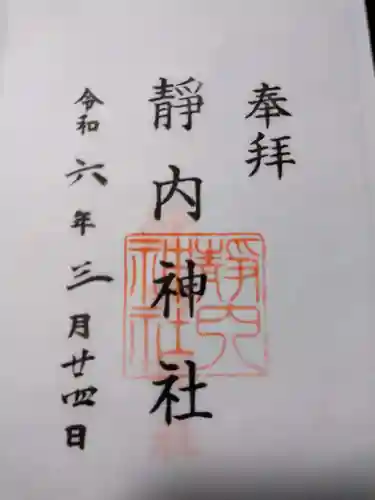 奉拝
靜内神社
靜内神社
令和六年三月廿四日